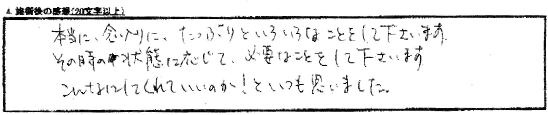 4. 施術後の感想(20文字以上)
本当に、念入りに、たっぷりといろいろなことをして下さいます。
その時の状態に応じて、必要なことをして下さいます
こんなにしてくれていいのか!といつも思いました。